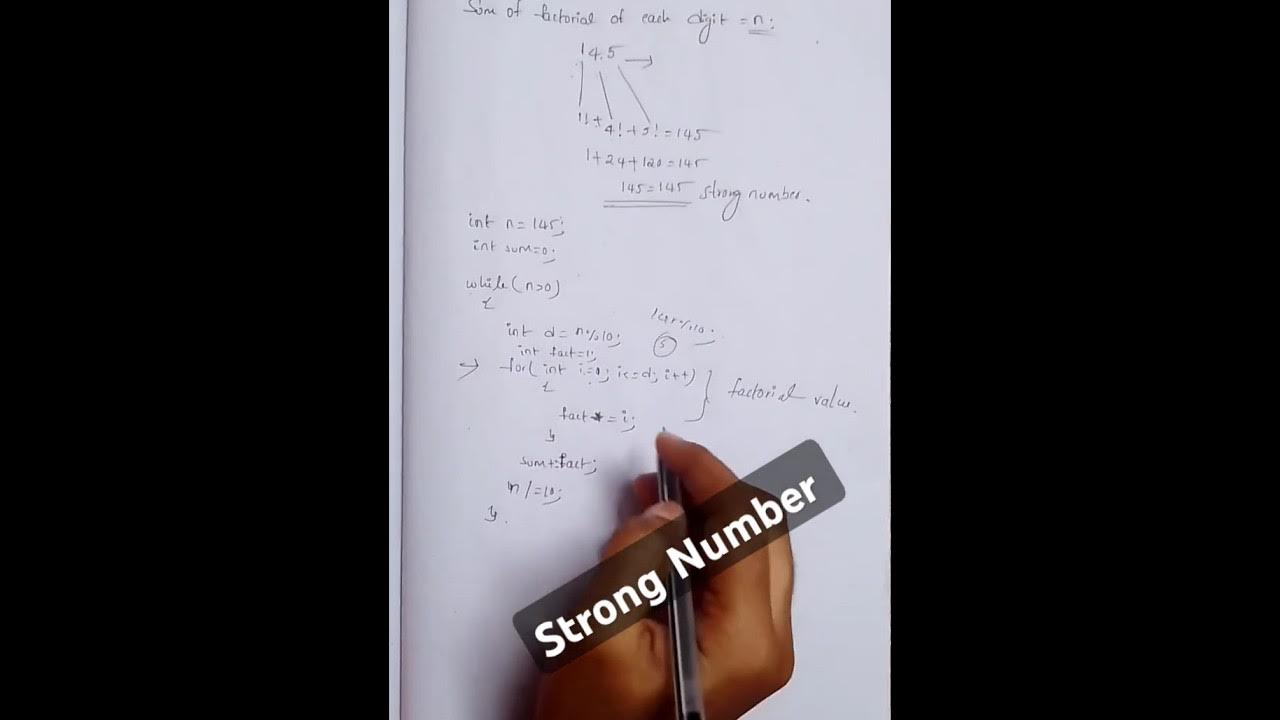 Sum of factorial of each digit = n:
145 →
1! + 4! + 5! = 145
1 + 24 + 120 = 145
145 = 145 strong number.
int n = 145;
int sum=0;
while (n>0)
{
int d = n%10;
145%10;
5
int fact=1;
→ for( int i= ; i<=d; i++)
{
factorial value.
fact *= i;
}
sum+=fact;
n /=10;
}
Strong Number